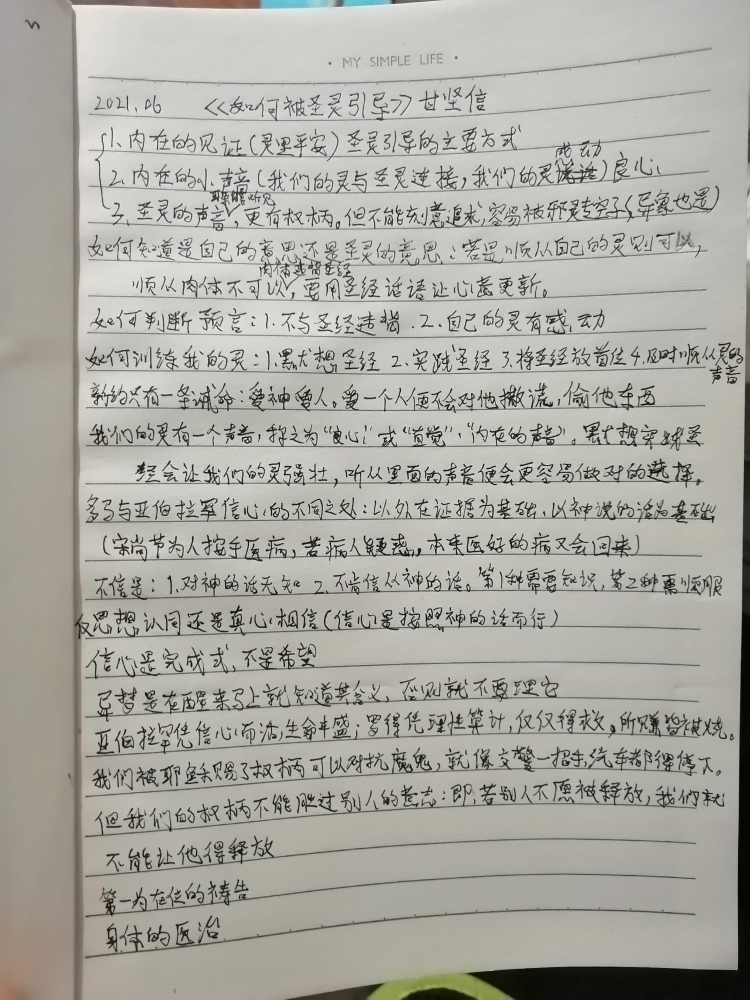 MY SIMPLE LIFE
2021.06 《如何被圣灵引导》甘坚信
1. 内在的见证(灵里平安) 圣灵引导的主要方式
感动
2. 内在的小声音(我们的灵与圣灵连接, 我们的灵说话)良心
耳朵听见
3. 圣灵的声音, 更有权柄。但不能刻意追求, 容易被邪灵钻空子(异象也是)
如何知道是自己的意思还是圣灵的意思: 若是顺从自己的灵则可以,
肉体违背圣经
顺从肉体不可以, 要用圣经话语让心意更新。
如何判断预言: 1. 不与圣经违背 2. 自己的灵有感动
如何训练我的灵: 1. 默想圣经 2. 实践圣经 3. 将圣经放首位 4. 及时顺从灵的声音
新约只有一条诫命: 爱神爱人。爱一个人便不会对他撒谎, 偷他东西
我们的灵有一个声音, 称之为"良心"或"直觉", "内在的声音)。默想实践圣
经会让我们的灵强壮, 听从里面的声音便会更容易做对的选择。
多马与亚伯拉罕信心的不同之处: 以外在证据为基础, 以神说的话为基础
(宋尚节为人按手医病, 若病人疑惑, 本来医好的病又会回来)
不信是: 1. 对神的话无知 2. 不肯信从神的话。第1种需要知识, 第2种需顺服
仅思想认同还是真心相信(信心是按照神的话而行)
信心是完成式, 不是希望
异梦是在醒来马上就知道其含义, 否则就不要理它
亚伯拉罕凭信心而活, 生命丰盛; 罗得凭理性算计, 仅仅得救, 所赚皆被烧。
我们被耶稣赐了权柄可以对抗魔鬼, 就像交警一招手, 汽车都得停下。
但我们的权柄不能胜过别人的意志: 即, 若别人不愿被释放, 我们就
不能让他得释放
第一为在位的祷告
身体的医治